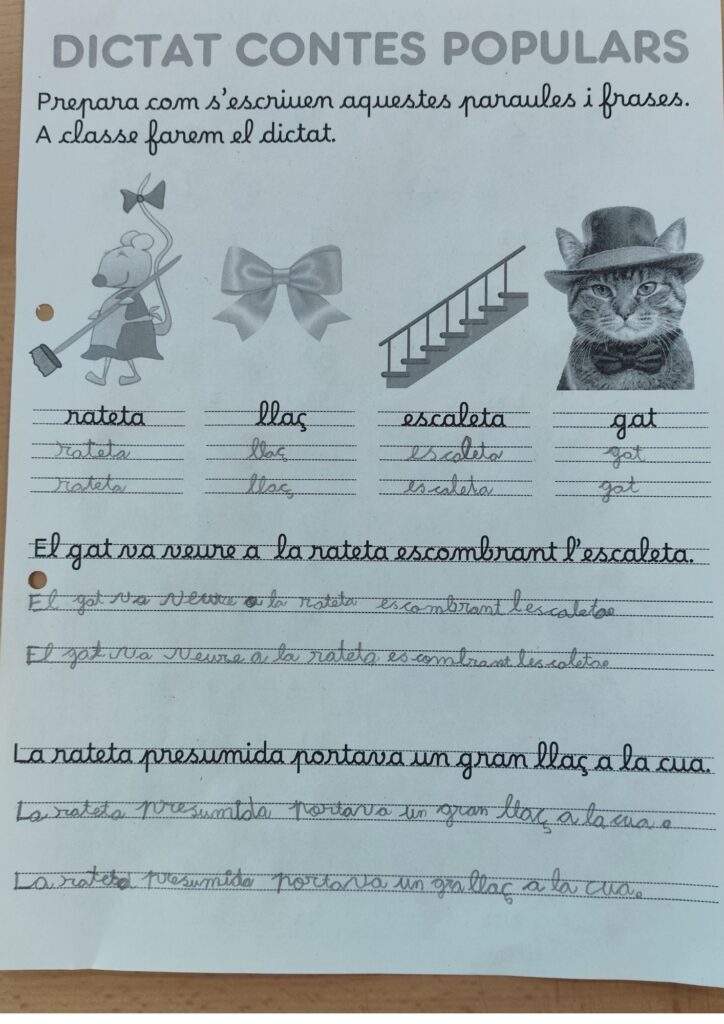 DICTAT CONTES POPULARS
Prepara com s'escriuen aquestes paraules i frases.
A classe farem el dictat.
rateta llaç escaleta gat
rateta llaç escaleta gat
rateta llaç escaleta gat
El gat va veure a la rateta escombrant l'escaleta.
El gat va veure a la rateta escombrant lescaleta.
El gat va veure a la rateta escombrant lescaleta.
La rateta presumida portava un gran llaç a la cua.
La rateta presumida portava un gran llaç a la cua.
La rateta presumida portava un gra llaç a la cua.